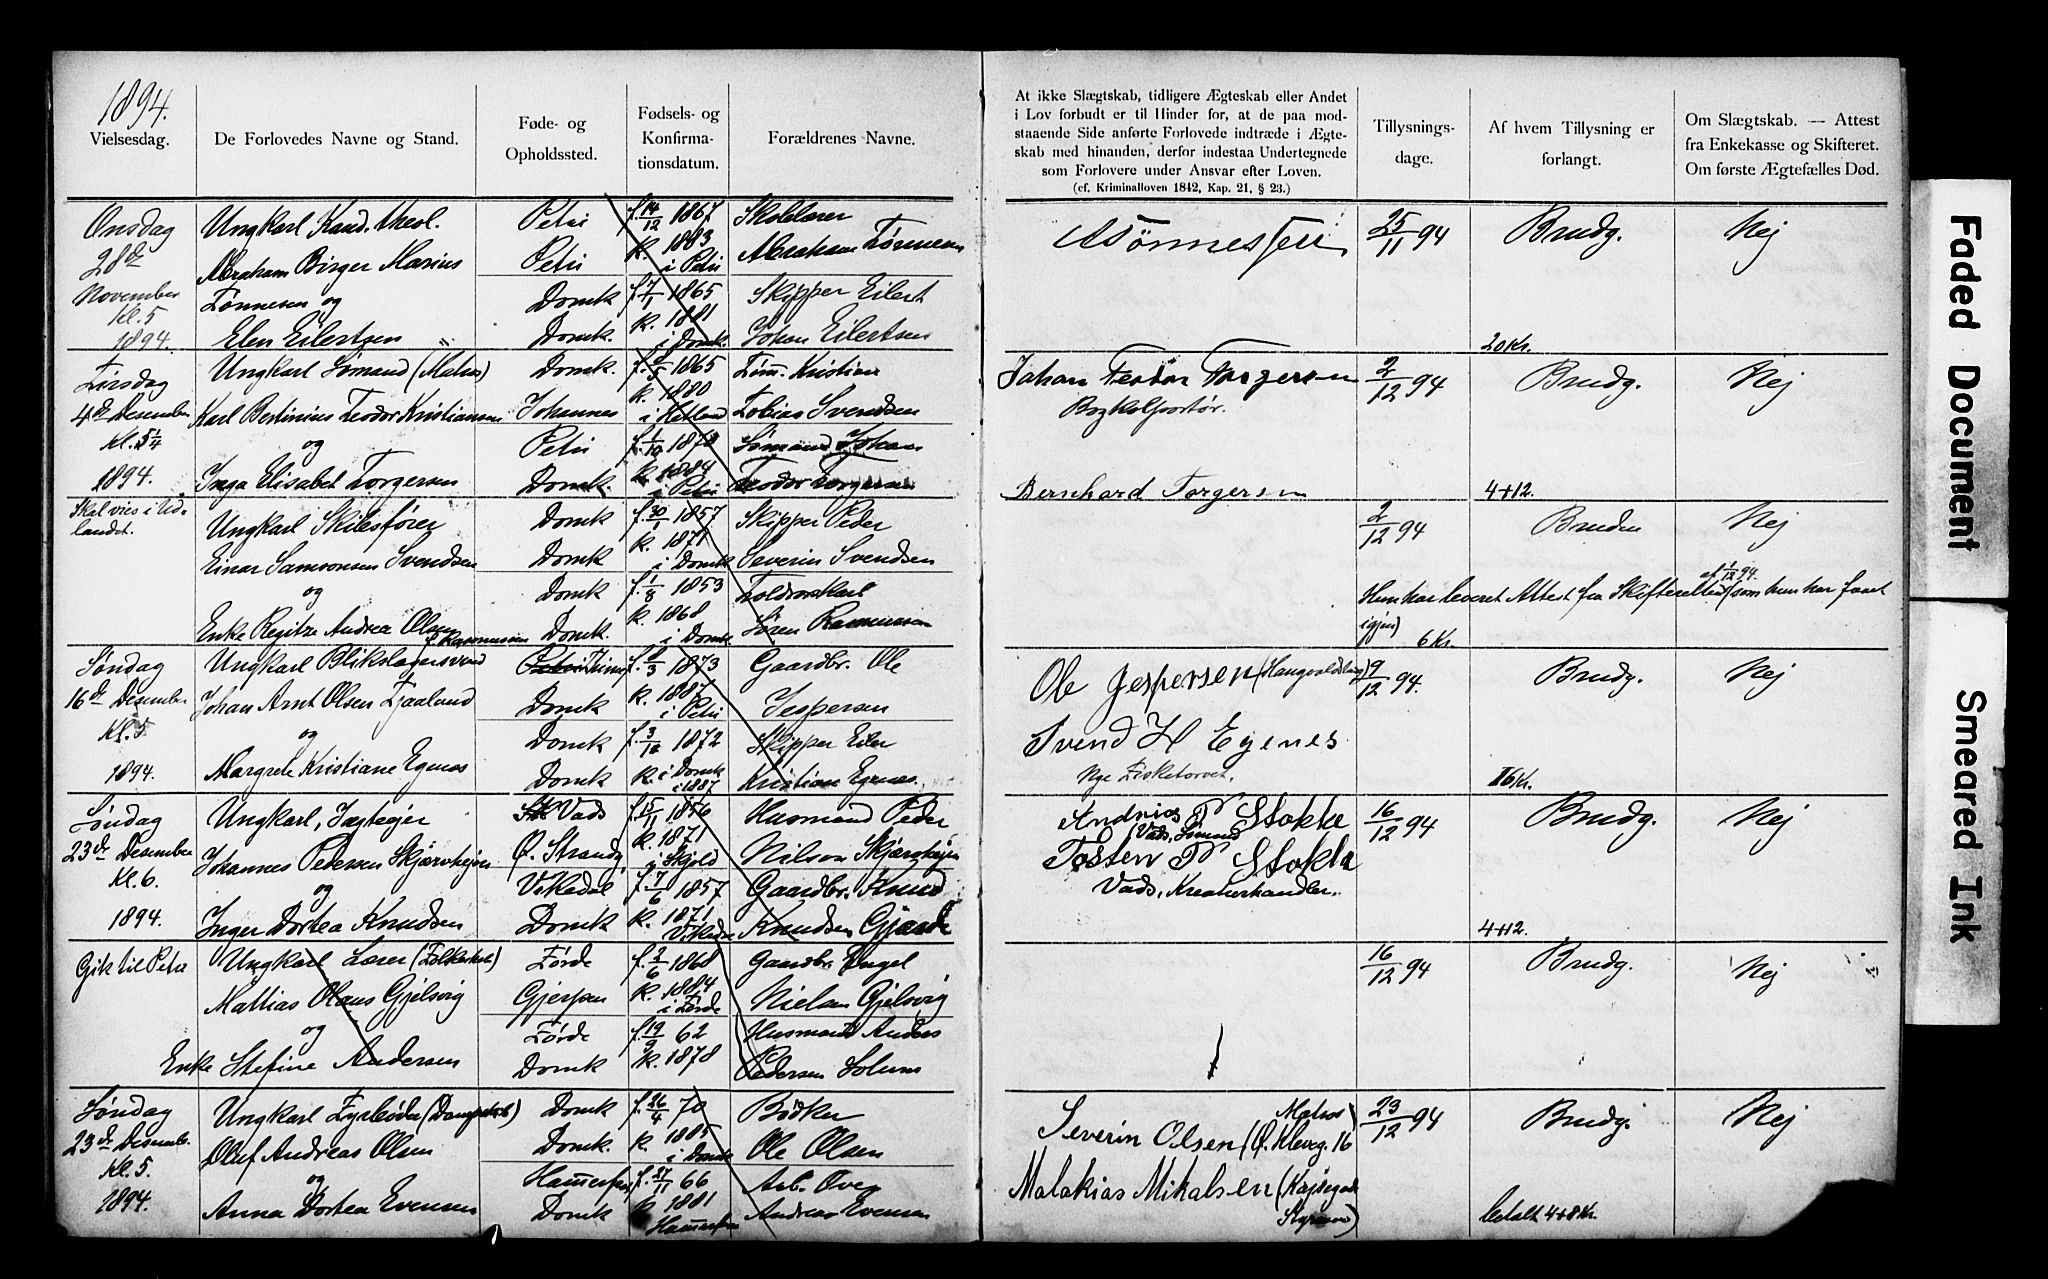 1894.
Vielsesdag.
De Forlovedes Navne og Stand.
Føde- og
Opholdssted.
Fødsels- og
Konfirma-
tionsdatum.
Forældrenes Navne.
At ikke Slægtskab, tidligere Ægteskab eller Andet
i Lov forbudt er til Hinder for, at de paa mod-
staaende Side anførte Forlovede indtræde i Ægte-
skab med hinanden, derfor indestaa Undertegnede
som Forlovere under Ansvar efter Loven.
(cf. Kriminalloven 1842, Kap. 21, § 23.)
Tillysnings-
dage.
Af hvem Tillysning er
forlangt.
Om Slægtskab. — Attest
fra Enkekasse og Skifteret.
Om første Ægtefælles Død.
Onsdag
28de
November
Kl. 5
1894.
Ungkarl Kand. theol.
Abraham Birger Marius
Tønnesen og
Elen Eilertsen
Petri
Petri
Domk
Domk.
f. 14/12 1867
k. 1883
i Petri
f. 7/1 1865
k. 1881
i Domk.
Skolelærer
Abraham Tønnesen
Skipper Eilert
Johan Eilertsen
ATønnessen
25/11 94
Brudg.
20 Kr.
Nej
Tirsdag
4de Desember
Kl. 5 1/4
1894.
Ungkarl Sømand (Matros)
Karl Bertinius Teodor Kristiansen
og
Inga Elisabet Torgersen
Domk.
Johannes
Petri
Domk.
1865
k. 1880
i Hetland
f. 1/10
k. 1884
i Petri
Tøm. Kristian
Tobias Svendsen
Sømand Johan
Teodor Torgersen
Johan Teodor Torgersen
Bogkolportør.
Bernhard Torgersen
2/12 94
Brudg.
4+12.
Nej
Skal vies i Ud-
landet.
Ungkarl Skibsfører
Einar Samsonsen Svendsen
og
Enke Regitze Andrea Olsen
f. Rasmussen
Domk
Domk
Domk
Domk.
f. 30/1 1857
k. 1871
i Domk
f. 1/8 1853
k. 1868
i Domk
Skipper Peder
Severin Svendsen
Toldroerskarl
Søren Rasmussen
2/12 94
Bruden
Nej
af 1/12 94.
Hun har leveret Attest fra Skifteretten (som hun har faaet
igjen)
6 Kr.
Søndag
16de Desember
Kl. 5
1894.
Ungkarl Blikslagersvend
Johan Arnt Olsen Tjaaland
og
Margrete Kristiane Egenes
Domk
Domk
Domk
f. 8/3 1873
k. 1887
i Petri
f. 3/10 1872
k. i Domk
i 1887
Gaardbr. Ole
Jespersen
Skipper Eiler
Kristian Egenes.
Ole Jespersen
Svend H Egenes
Nye Fisketorvet.
9/12 94.
Brudg.
16 Kr.
Nej
Søndag
23de Desember
Kl. 6.
1894.
Ungkarl, Jagteier
Johannes Pedersen Skjærshejen
og
Inger Dortea Knudsen
Vads
Ø. Strandg
Vikedal
Domk
f. 15/11 1856
k. 1871
i Skjold
f. 7/6 1857
k. 1871
Vikedal
Husmand Peder
Nilson Skjærshejen
Gaardbr. Knud
Knudsen Gjerde
Andreas P Stokke
Vads, Sømand
Tosten P Stokke
Vads, Kreaturhandler.
16/12 94
Brudg.
4+12.
Nej
Gik til Petri
Ungkarl Lærer (Folkeskole)
Mattias Olaus Gjelsvig
og
Enke Stefine Andersen
Førde
Gjerpen
Førde
Domk
f. 3/6 1868
k. 1884
i Førde
f. 19/9 62
k. 1878
Gaardbr. Engel
Nielsen Gjelsvig
Husmand Anders
Pedersen Solum
16/12 94
Brudg.
Nej
Søndag
23de Desemb.
Kl. 5.
1894.
Ungkarl Fyrbøder (Dampskib)
Oluf Andreas Olsen
og
Anna Dortea Evensen
Domk
Domk.
Hammerfest
Domk
f. 26/4 70
k. 1885
i Domk
f. 27/11 66
k. 1881
Hammerfest
Bødker
Ole Olsen
Arb. Over
Andreas Evensen
Matros
Severin Olsen (Ø. Kleveg. 16
Malakias Mikalsen (Kajsegade
Styrmand)
23/12 94
Brudg.
betalt 4+8 Kr.
Nej
Faded Document
Smeared Ink